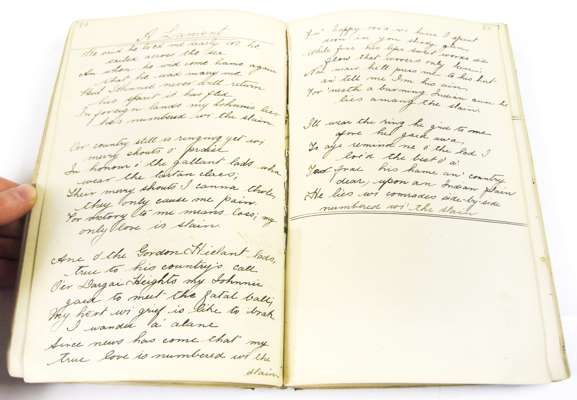 A Lament
He said he lo'ed me dearly wi' he
sailed across the sea
An when he wad come hame again
that he wad marry me
But Johnnie never will return
his spirit is has fled
In foreign lands my Johnnie lies
He's numbered wi' the slain
Oor country still is ringing yet wi'
mony shouts o' praise
In honour o' the gallant lads wha
wear the tartan claes,
Their mony shouts I canna thole,
they only cause me pain
For victory to me means loss; my
only love is slain
Ane o' the Gordon Hielant lads,
true to his country's call
O'er Dargai Heights my Johnnie
gaed to meet the fatal ball,
My hert wi' grief is like to brak
I wander a' alane
Since news has come that my
true love is numbered wi' the
slain
happy we've I spent
in yon glen
While frae his lips sweet words
flow that lovers only ken
wad press me to his
an' tell me I'm his ain
For 'neath a burning Indian sun he
lies amang the slain
I'll wear the ring he gied to me
afore he gaed awa,
To aye remind me o' the lad I
loe'd the best o' a'
Far frae his hame an' country
dear, upon an Indian plain
He lies wi' comrades side-by-side
numbered wi' the slain